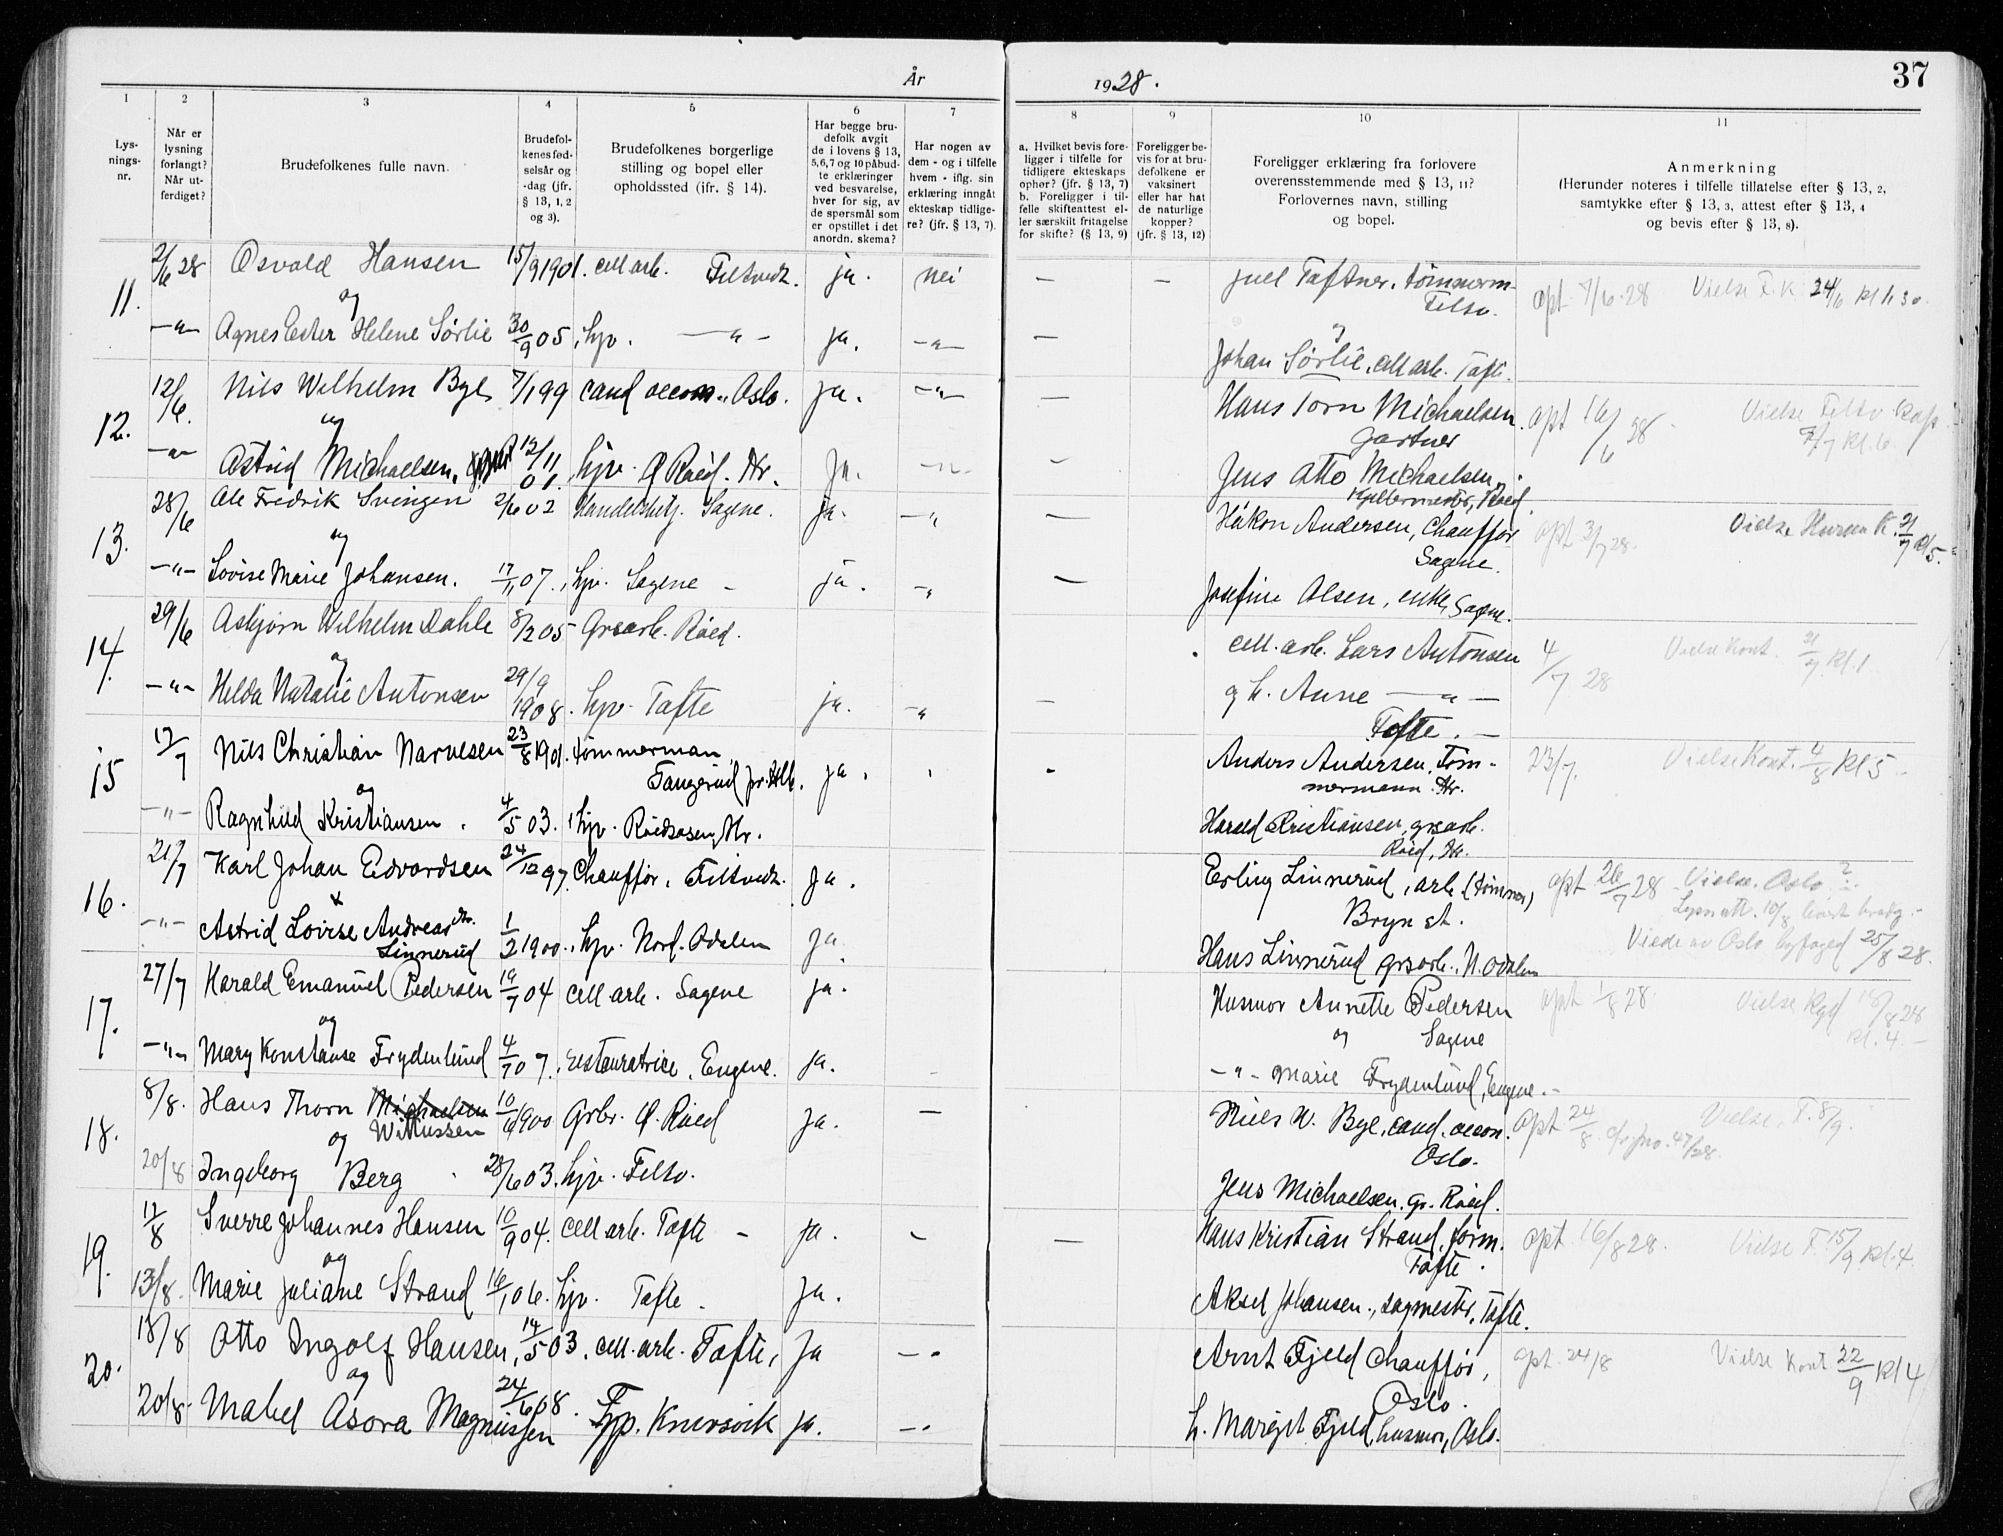 År 1928.
37
1 2 3 4 5 6 7 8 9 10 11
Lys-
nings-
nr.
Når er
lysning
forlangt?
Når ut-
ferdiget?
Brudefolkenes fulle navn.
Brudefol-
kenes fød-
selsår og
-dag (jfr.
§ 13, 1, 2
og 3).
Brudefolkenes borgerlige
stilling og bopel eller
opholdssted (jfr. § 14).
Har begge bru-
defolk avgit
de i lovens § 13,
5,6,7 og 10 påbud-
te erklæringer
ved besvarelse,
hver for sig, av
de spørsmål som
er opstillet i det
anordn. skema?
Har nogen av
dem - og i tilfelle
hvem - iflg. sin
erklæring inngått
ekteskap tidlige-
re? (jfr. § 13, 7).
a. Hvilket bevis fore-
ligger i tilfelle for
tidligere ekteskaps
ophør? (jfr. § 13, 7)
b. Foreligger i til-
felle skifteattest el-
ler særskilt fritagelse
for skifte? (§ 13, 9)
Foreligger be-
vis for at bru-
defolkene er
vaksinert
eller har hat
de naturlige
kopper?
(jfr. § 13, 12)
Foreligger erklæring fra forlovere
overensstemmende med § 13, 11?
Forlovernes navn, stilling
og bopel.
Anmerkning
(Herunder noteres i tilfelle tillatelse efter § 13, 2,
samtykke efter § 13, 3, attest efter § 13, 4
og bevis efter § 13, 8).
11. 2/6 28 Osvald Hansen 15/9 1901. cell arb. Filtvedt. ja. nei — — Juel Toftner, tømmerm. Filtv. opt 7/6.28 Vielse F.K 24/6 kl 1,30.
og
—"— Agnes Ester Helene Sørlie 30/9 05 hjv. —"— ja. —"— — Johan Sørlie, cell arb. Tofte.
12. 12/6. Nils Wilhelm Bye 7/1 99 cand oecon., Oslo. ja. —"— — Hans Torn Michaelsen. Gartner opt 16/6 28. Vielse Filtv. kap. 7/7 kl. 6.
og
—"— Astrid Michaelsen, 12/11 01. hjv. Ø Røed. Hr. Ja. —"— — Jens Otto Michaelsen, Røed.
13. 28/6 Ole Fredrik Svingen 2/6 02 Handelsbetj. Sagene. ja. —"— — Håkon Andersen, Chauffør Sagene. opt 3/7 28. Vielse Hurum K. 21/7 kl 5.
og
—"— Lovise Marie Johansen. 17/11 07. hjv. Sagene ja. —"— — Josefine Olsen, enke, Sagene.
14. 29/6 Asbjørn Wilhelm Dahle 8/2 05 Grsarb. Røed. cell. arb. Lars Antonsen 4/7 28 Vielse Kont. 21/7 kl. 1
og
—"— Helda Natalie Antonsen 29/9 1908. hjv. Tofte ja. —"— — g h. Anne —"—
Tofte.
15 17/7 Nils Christian Narvesen 23/8 1901. tømmerman, Tangerud pr. Hlb. ja. Anders Andersen, Tøm-
mermann. Hr. 23/7. Vielse Kont. 4/8 Kl 5
og
—"— Ragnhild Kristiansen. 4/5 03. hjv. Røedsåsen, Hr. Harald Kristiansen, grsarb.
Røed, Hr.
16. 21/7 Karl Johan Edvardsen 24/12 97. Chauffør, Filtvedt. Ja. Erling Linnerud, arb. (tømmer) Bryn st. opt 26/7 28 Vielse. Oslo ?
Lysn att. 10/8
—"— Astrid Lovise Andreasdtr. Linnerud 1/2 1900., hjv. Nord. Odalen ja. Hans Linnerud grsarb., N. Odalen Viede av Oslo byfoged 25/8 28.
17. 27/7 Harald Emanuel Pedersen 19/7 04 cell arb. Sagene ja. Husmor Annette Pedersen opt 1/8 28. Vielse Kgd 18/8 28 kl. 4.
og og Sagene
—"— Mary Konstanse Frydenlund 4/7 07. restauratrice, Engene. ja. —"— Marie Frydenlund, Engene.
18. 8/8. Hans Thorn Michaelsen Wittussen 10/6 1900 Grbr. Ø. Røed Ja. — Niels W. Bye, cand. oecon. Oslo. opt 24/8 cfr jno. 47/28. Vielse. F. 8/9.
og
20/8 Ingeborg Berg 28/6 03. hjv. Filtv. Jens Michaelsen, gr. Røed.
19. 11/8 Sverre Johannes Hansen 10/9 04. cell arb. Tofte ja. — Hans Kristian Strand, form. Tofte. opt. 16/8 28. Vielse F. 15/9 kl. 4.
og
13/8. Marie Juliane Strand 16/1 06. hjv. Tofte. Ja. Aksel Johansen., sagmester, Tofte.
20. 18/8 Otto Ingolf Hansen, 14/5 03, cell. arb. Tofte, Ja — Arnt Fjeld Chauffør, Oslo. opt. 24/8 Vielse Kont 22/9 Kl 4
og
20/8. Mabel Asora Magnussen 24/6 08. Hjp. Knivsvik ja. — h. Margit Fjeld, husmor, Oslo.